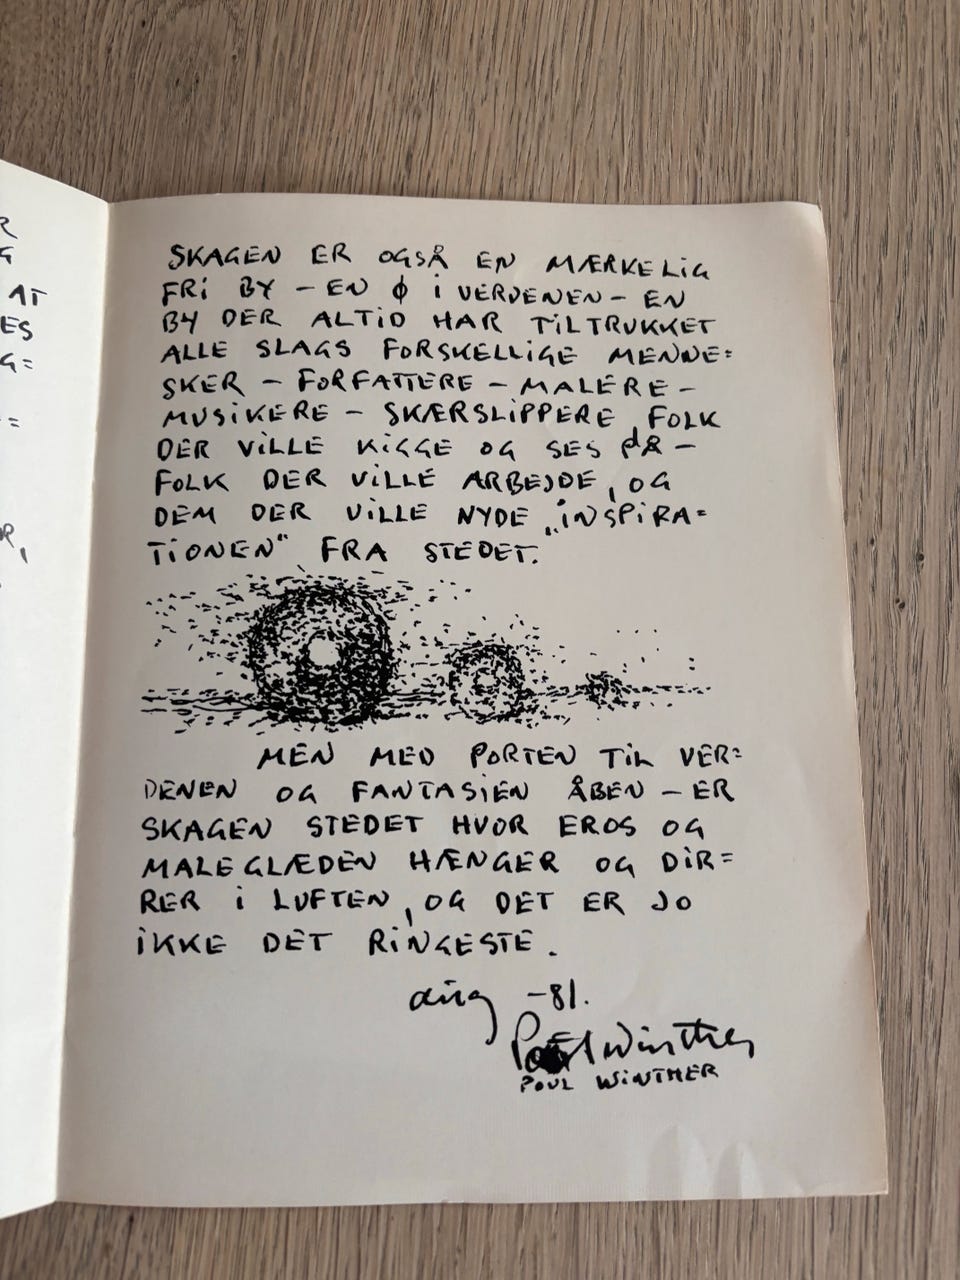 R
G
AT
ES
G=
=
R,
SKAGEN ER OGSÅ EN MÆRKELIG
FRI BY – EN Ø I VERDENEN – EN
BY DER ALTID HAR TILTRUKKET
ALLE SLAGS FORSKELLIGE MENNE=
SKER – FORFATTERE – MALERE –
MUSIKERE – SKÆRSLIPPERE, FOLK
DER VILLE KIGGE OG SES PÅ –
FOLK DER VILLE ARBEJDE, OG
DEM DER VILLE NYDE „INSPIRA=
TIONEN" FRA STEDET.
MEN MED PORTEN TIL VER=
DENEN OG FANTASIEN ÅBEN – ER
SKAGEN STEDET HVOR EROS OG
MALEGLÆDEN HÆNGER OG DIR=
RER I LUFTEN, OG DET ER JO
IKKE DET RINGESTE.
aug –81.
Poul Winther
POUL WINTHER